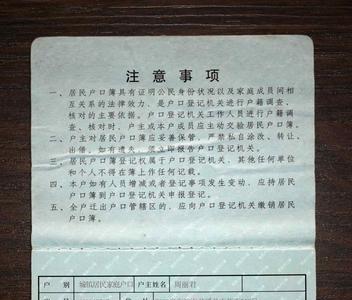 注意事项
一、居民户口簿具有证明公民身份状况以及家庭成员间相
互关系的法律效力，是户口登记机关进行户籍调查、
核对的主要依据。户口登记机关工作人员进行户籍调
查、核对时，户主或本户成员应主动交验居民户口簿。
二、户主对居民户口簿应妥善保管，严禁私自涂改、转让、
出借。如有遗失，须立即报告户口登记机关。
三、居民户口簿登记权属于户口登记机关，其他任何单位
和个人不得在簿上作任何记载。
四、本户如有人员增减或者登记事项发生变动，应持居民
户口簿到户口登记机关申报登记。
五、全户迁出户口管辖区的，应向户口登记机关缴销居民
户口簿。
户别 城镇居民家庭户口 户主姓名 周丽君